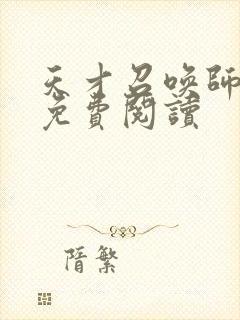 天才召唤師
免費閱讀
隋繁